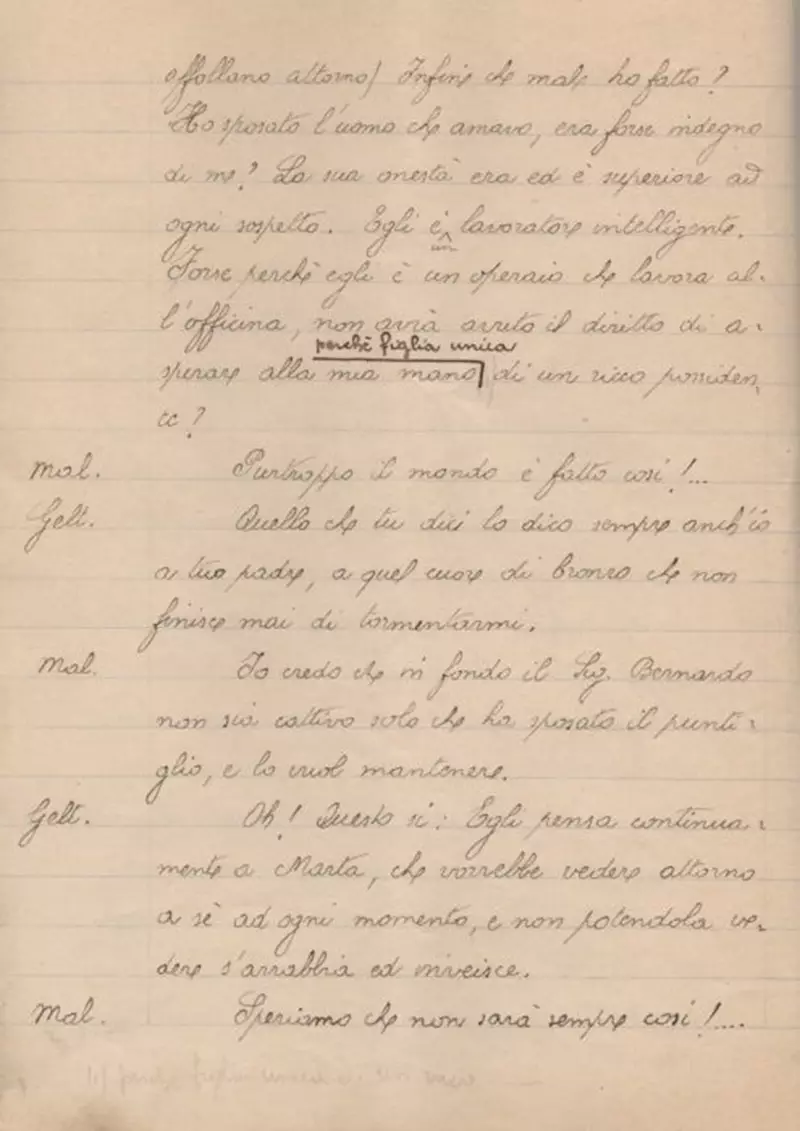 affollano attorno) Infine che male ho fatto?
Ho sposato l'uomo che amavo, era forse indegno
di me? La sua onestà era ed è superiore ad
ogni sospetto. Egli è lavoratore intelligente.
un
Forse perchè egli è un operaio che lavora al-
l'officina, non avrà avuto il diritto di a-
perchè figlia unica
sperare alla mia mano di un ricco possiden-
te?
Mal. Purtroppo il mondo è fatto così!...
Gelt. Quello che tu dici lo dico sempre anch'io
a tuo padre, a quel cuore di bronzo che non
finisce mai di tormentarmi.
Mal. Io credo che in fondo il Sig. Bernardo
non sia cattivo solo che ha sposato il punti-
glio, e lo vuol mantenere.
Gelt. Oh! Questo sì: Egli pensa continua-
mente a Marta, che vorrebbe vedere attorno
a sè ad ogni momento, e non potendola ve-
dere s'arrabbia ed inveisce.
Mal. Speriamo che non sarà sempre così!....
1) perchè figlia unica di un ricco